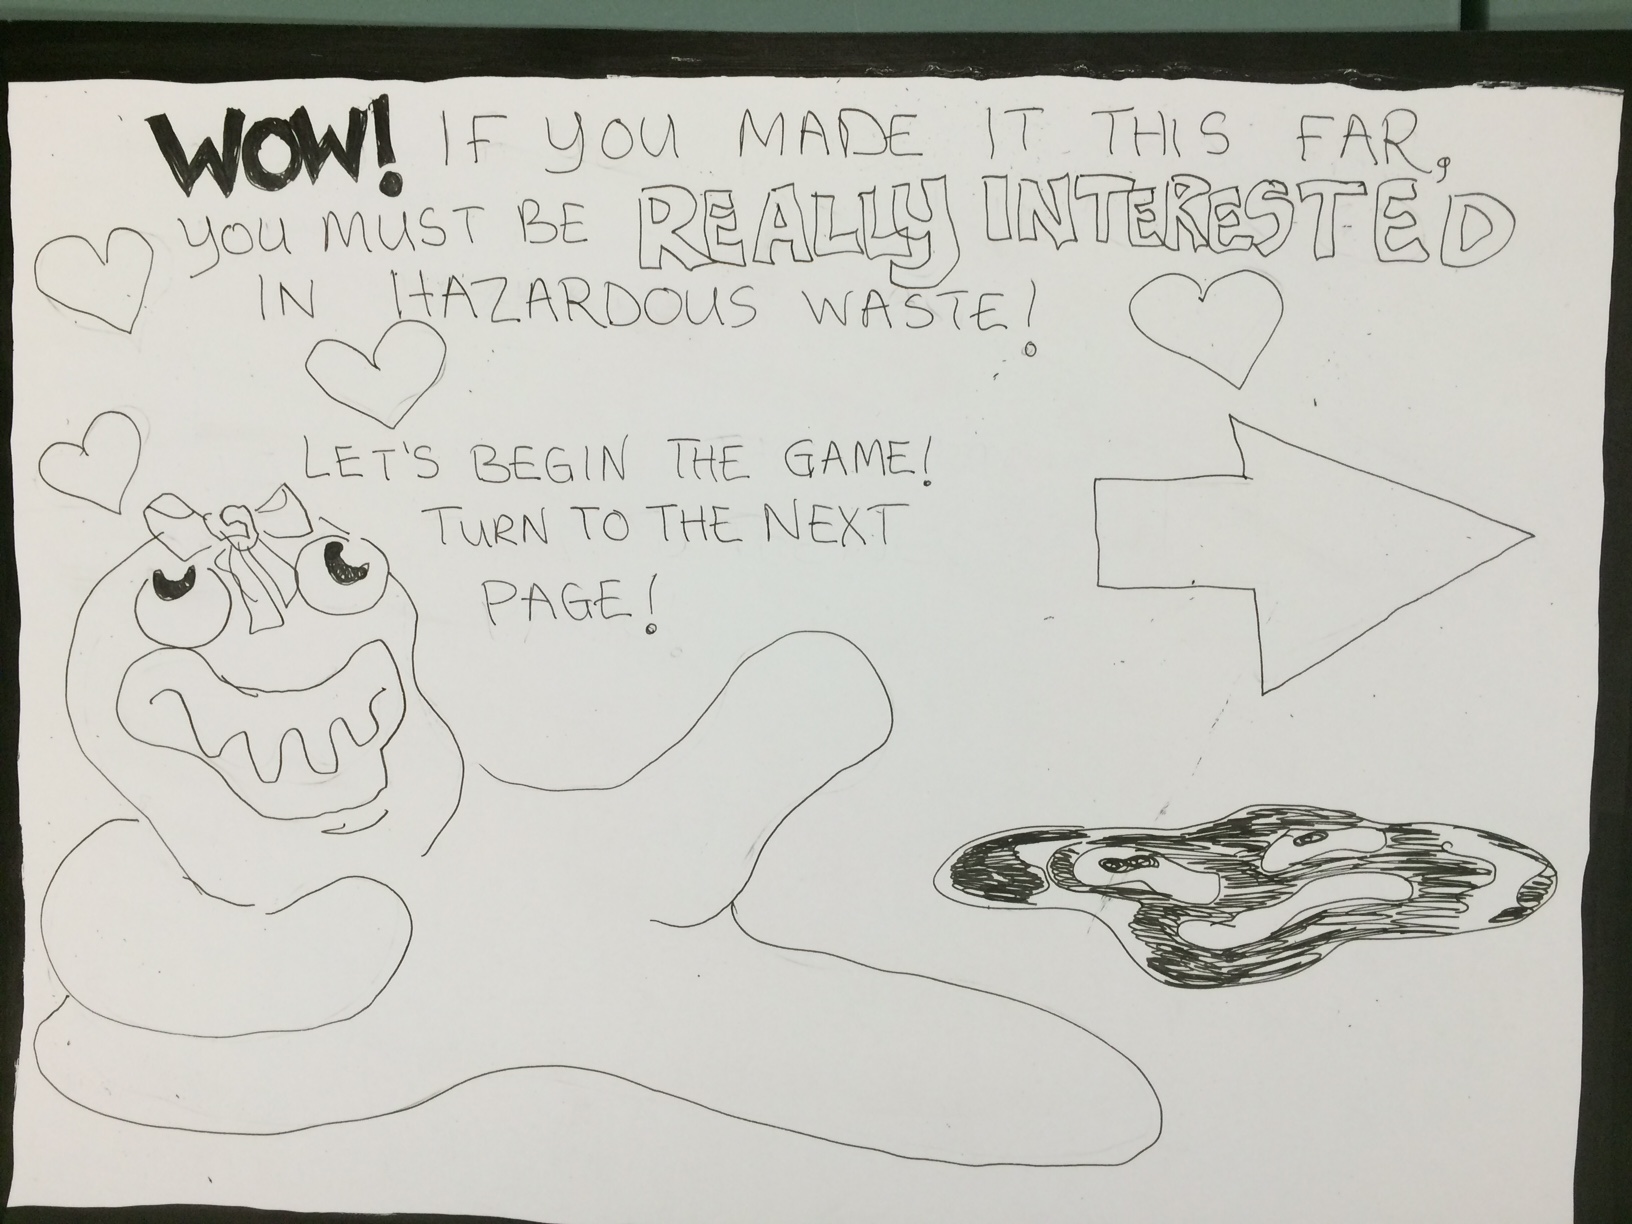 WOW! IF YOU MADE IT THIS FAR,
YOU MUST BE REALLY INTERESTED
IN HAZARDOUS WASTE!
LET'S BEGIN THE GAME!
TURN TO THE NEXT
PAGE!